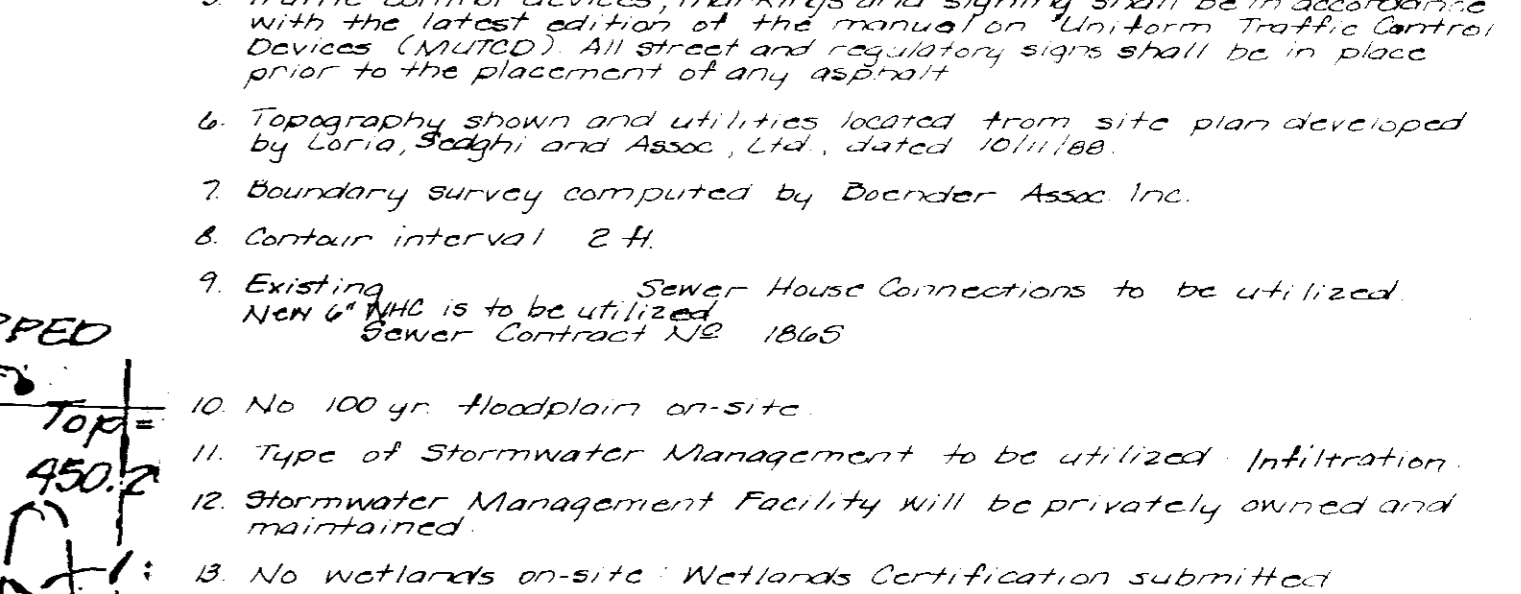 5. Traffic control devices, markings and signing shall be in accordance
with the latest edition of the manual on "Uniform Traffic Control
Devices (MUTCD). All street and regulatory signs shall be in place
prior to the placement of any asphalt
6. Topography shown and utilities located from site plan developed
by Loria, Sedghi and Assoc, Ltd., dated 10/11/88.
7. Boundary survey computed by Boender Assoc. Inc.
8. Contour interval 2 ft.
9. Existing Sewer House Connections to be utilized.
New 6" WHC is to be utilized
Sewer Contract Nº 1865
10. No 100 yr. floodplain on-site.
11. Type of Stormwater Management to be utilized: Infiltration.
12. Stormwater Management Facility will be privately owned and
maintained.
13. No wetlands on-site: Wetlands Certification submitted
PPED
Top =
450.2